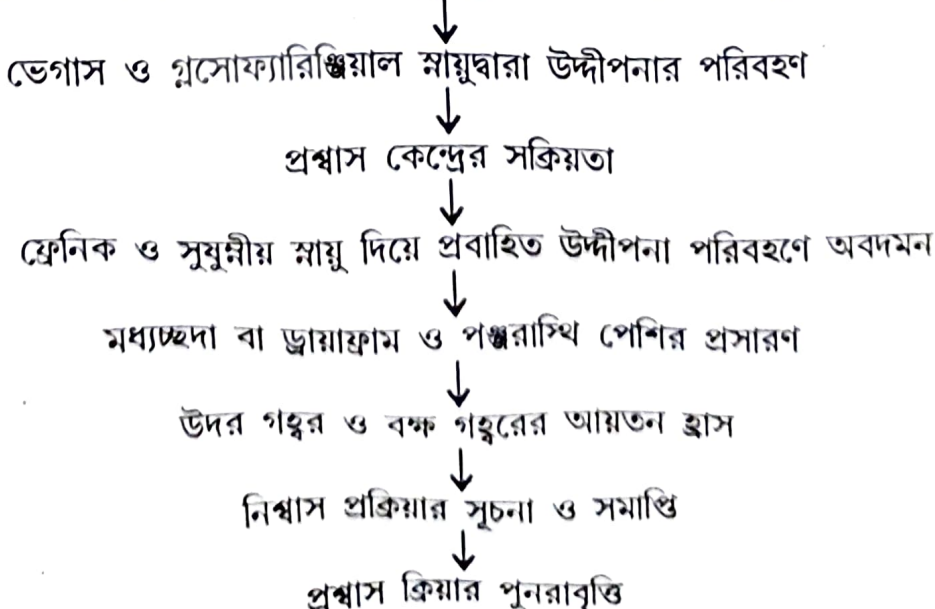 ভেগাস ও গ্লসোফ্যারিঞ্জিয়াল স্নায়ুদ্বারা উদ্দীপনার পরিবহণ
প্রশ্বাস কেন্দ্রের সক্রিয়তা
ফ্রেনিক ও সুষুম্নীয় স্নায়ু দিয়ে প্রবাহিত উদ্দীপনা পরিবহণে অবদমন
মধ্যচ্ছদা বা ড্রায়াফ্রাম ও পঞ্জরাস্থি পেশির প্রসারণ
উদর গহ্বর ও বক্ষ গহ্বরের আয়তন হ্রাস
নিশ্বাস প্রক্রিয়ার সূচনা ও সমাপ্তি
প্রশ্বাস ক্রিয়ার পুনরাবৃত্তি